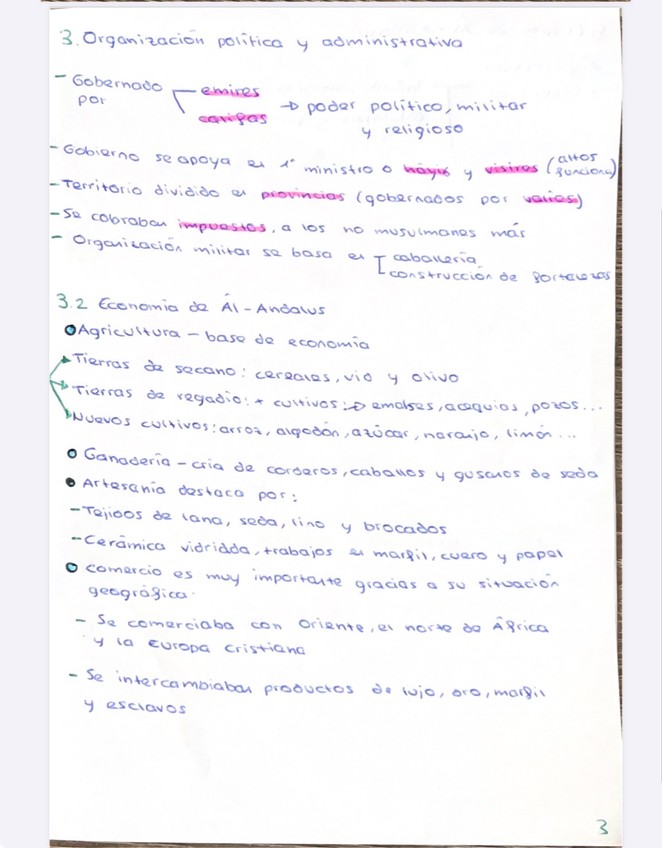 3. Organización política y administrativa
- Gobernado por emires
califas
→ poder político, militar
y religioso
- Gobierno se apoya en 1er ministro o hayix y visires (altos funciona)
- Territorio dividido en provincias (gobernados por valies)
- Se cobraban impuestos, a los no musulmanes más
- Organización militar se basa en caballería
construcción de fortalezas
3.2 Economía de Ál-Andalus
Agricultura - base de economía
Tierras de secano: cereales, vid y olivo
Tierras de regadío: + cultivos: → emalses, acequias, pozos...
Nuevos cultivos: arroz, algodón, azúcar, naranjo, limón...
Ganadería - cria de corderos, caballos y gusanos de seda
Artesanía destaca por:
- Tejidos de lana, seda, lino y brocados
- Cerámica vidridda, trabajos en marfil, cuero y papel
comercio es muy importante gracias a su situación
geográfica.
- Se comerciaba con Oriente, el norte de África
y la Europa cristiana
- Se intercambiaban productos de lujo, oro, marfil
y esclavos
3